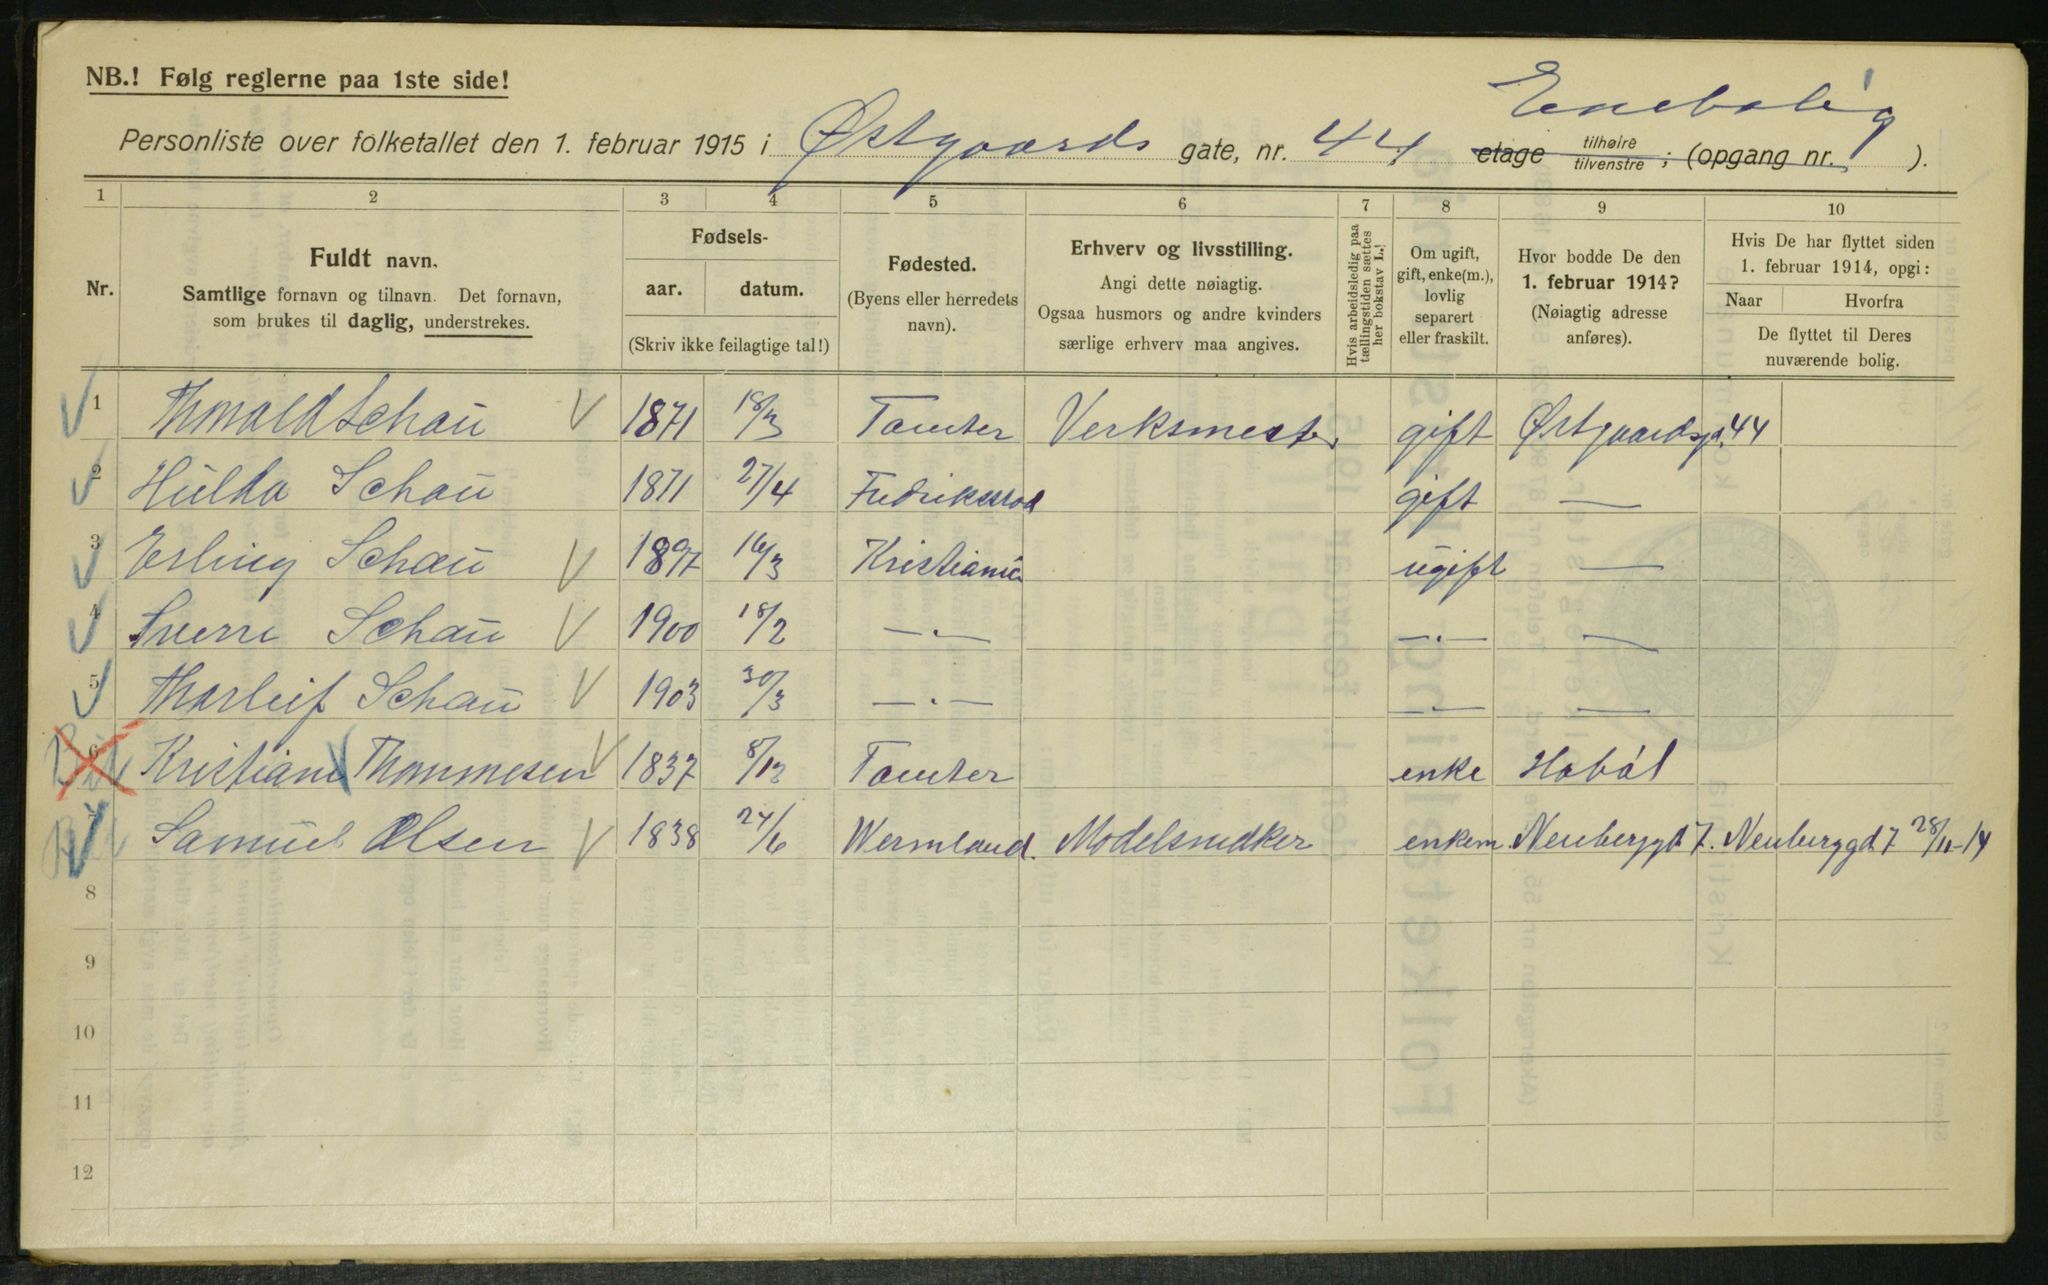 NB.! Følg reglerne paa 1ste side!
Enebolig
Personliste over folketallet den 1. februar 1915 i Østgaards gate, nr. 44 etage tilhøire tilvenstre ; (opgang nr. ).
1 2 3 4 5 6 7 8 9 10
Nr.
Fuldt navn.
Samtlige fornavn og tilnavn. Det fornavn,
som brukes til daglig, understrekes.
Fødsels-
aar. datum.
(Skriv ikke feilagtige tal!)
Fødested.
(Byens eller herredets
navn).
Erhverv og livsstilling.
Angi dette nøiagtig.
Ogsaa husmors og andre kvinders
særlige erhverv maa angives.
Hvis arbeidsledig paa
tællingstiden sættes
her bokstav L.!
Om ugift,
gift, enke(m.),
lovlig
separert
eller fraskilt.
Hvor bodde De den
1. februar 1914?
(Nøiagtig adresse
anføres).
Hvis De har flyttet siden
1. februar 1914, opgi:
Naar Hvorfra
De flyttet til Deres
nuværende bolig.
1 Thorvald Schau 1871 18/3 Tomter Verksmester gift Østgaardsg. 44
2 Hulda Schau 1871 27/4 gift —
3 Erling Schau 1897 16/3 Kristiania ugift —
4 Sverre Schau 1900 18/2 —„— —„— —
5 Thorleif Schau 1903 30/3 —„— —„— —
6 Kristiane Thommesen 1837 8/12 Tomter enke Hobøl
7 Samuel Olsen 1838 24/6 Wermland. Modelsnedker enkem. Neuberggd 7. Neuberggd. 7 28/11-14
8
9
10
11
12